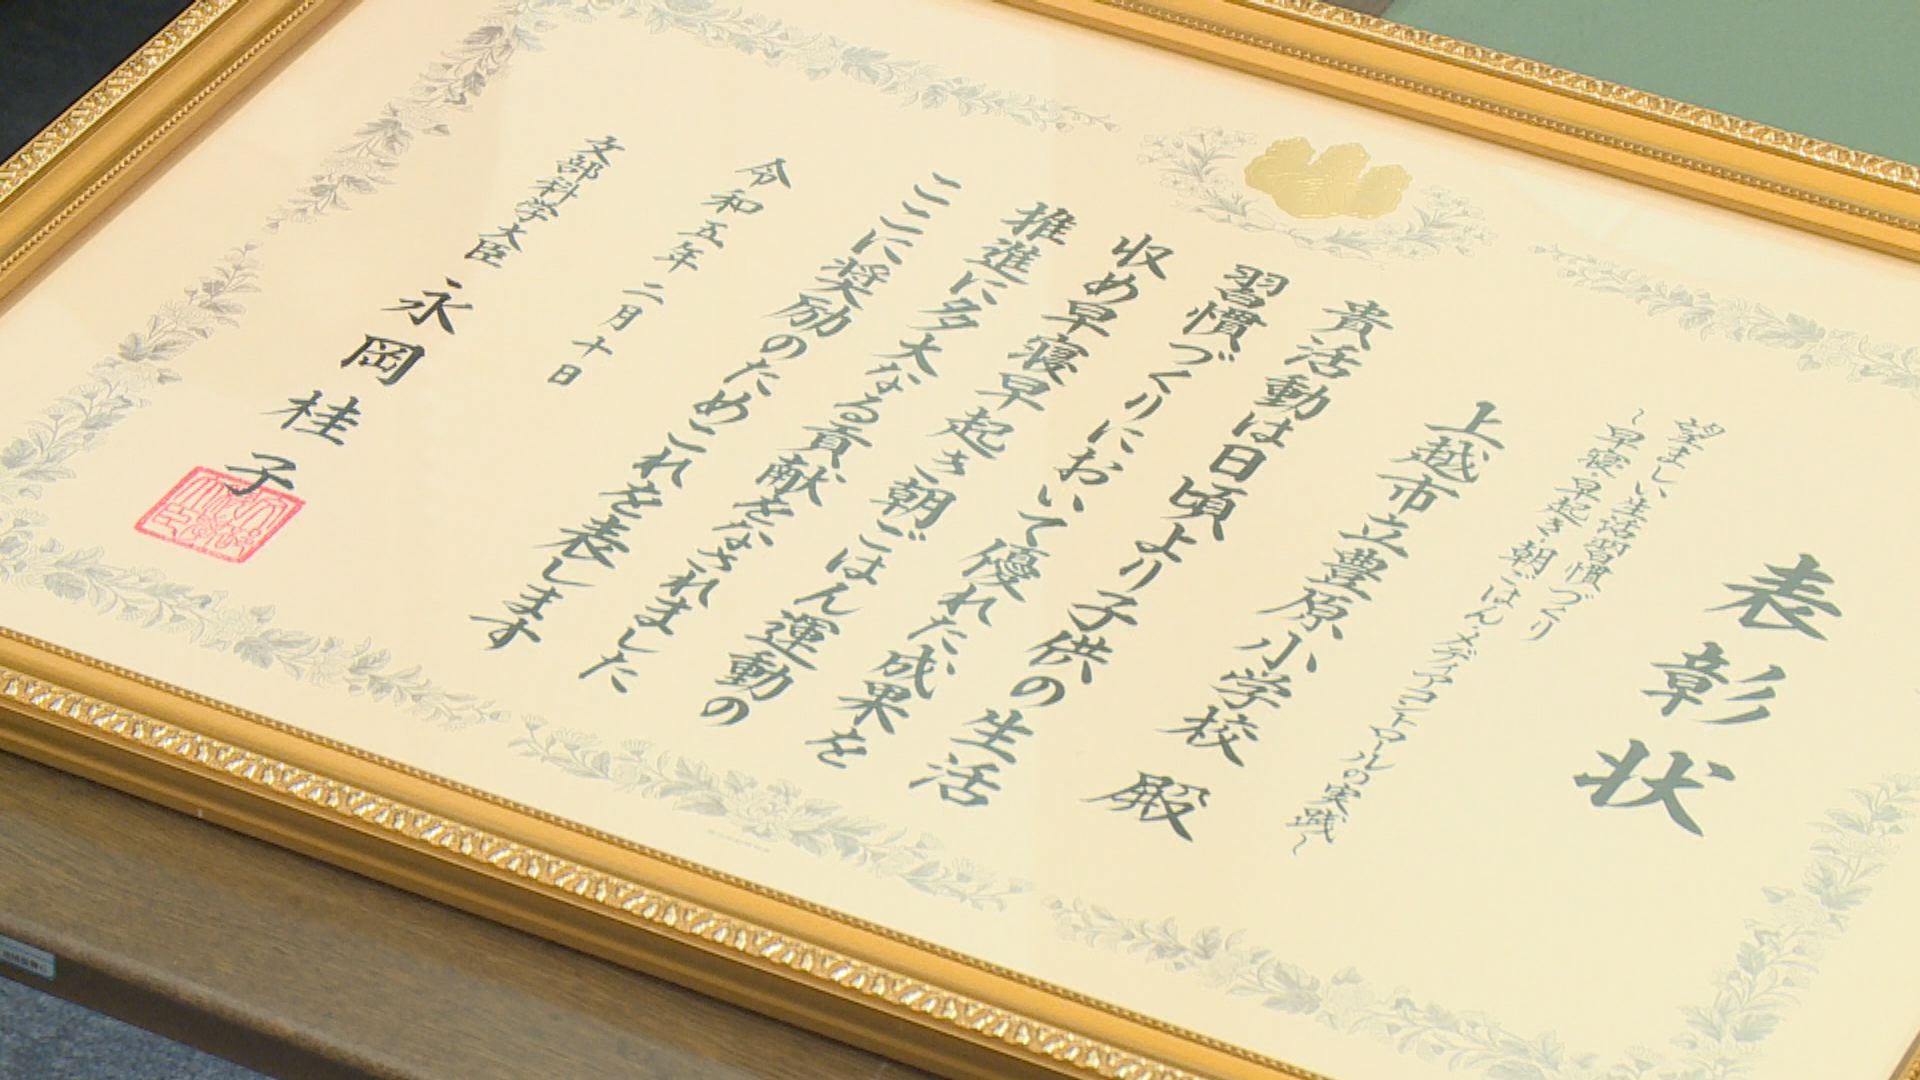 表彰状
望ましい生活習慣づくり
～早寝・早起き・朝ごはん・メディアコントロールの実践～
上越市立豊原小学校 殿
貴活動は日頃より子供の生活
習慣づくりにおいて優れた成果を
収め早寝早起き朝ごはん運動の
推進に多大なる貢献をなされました
ここに奨励のためこれを表します
令和五年二月十日
文部科学大臣 永岡桂子